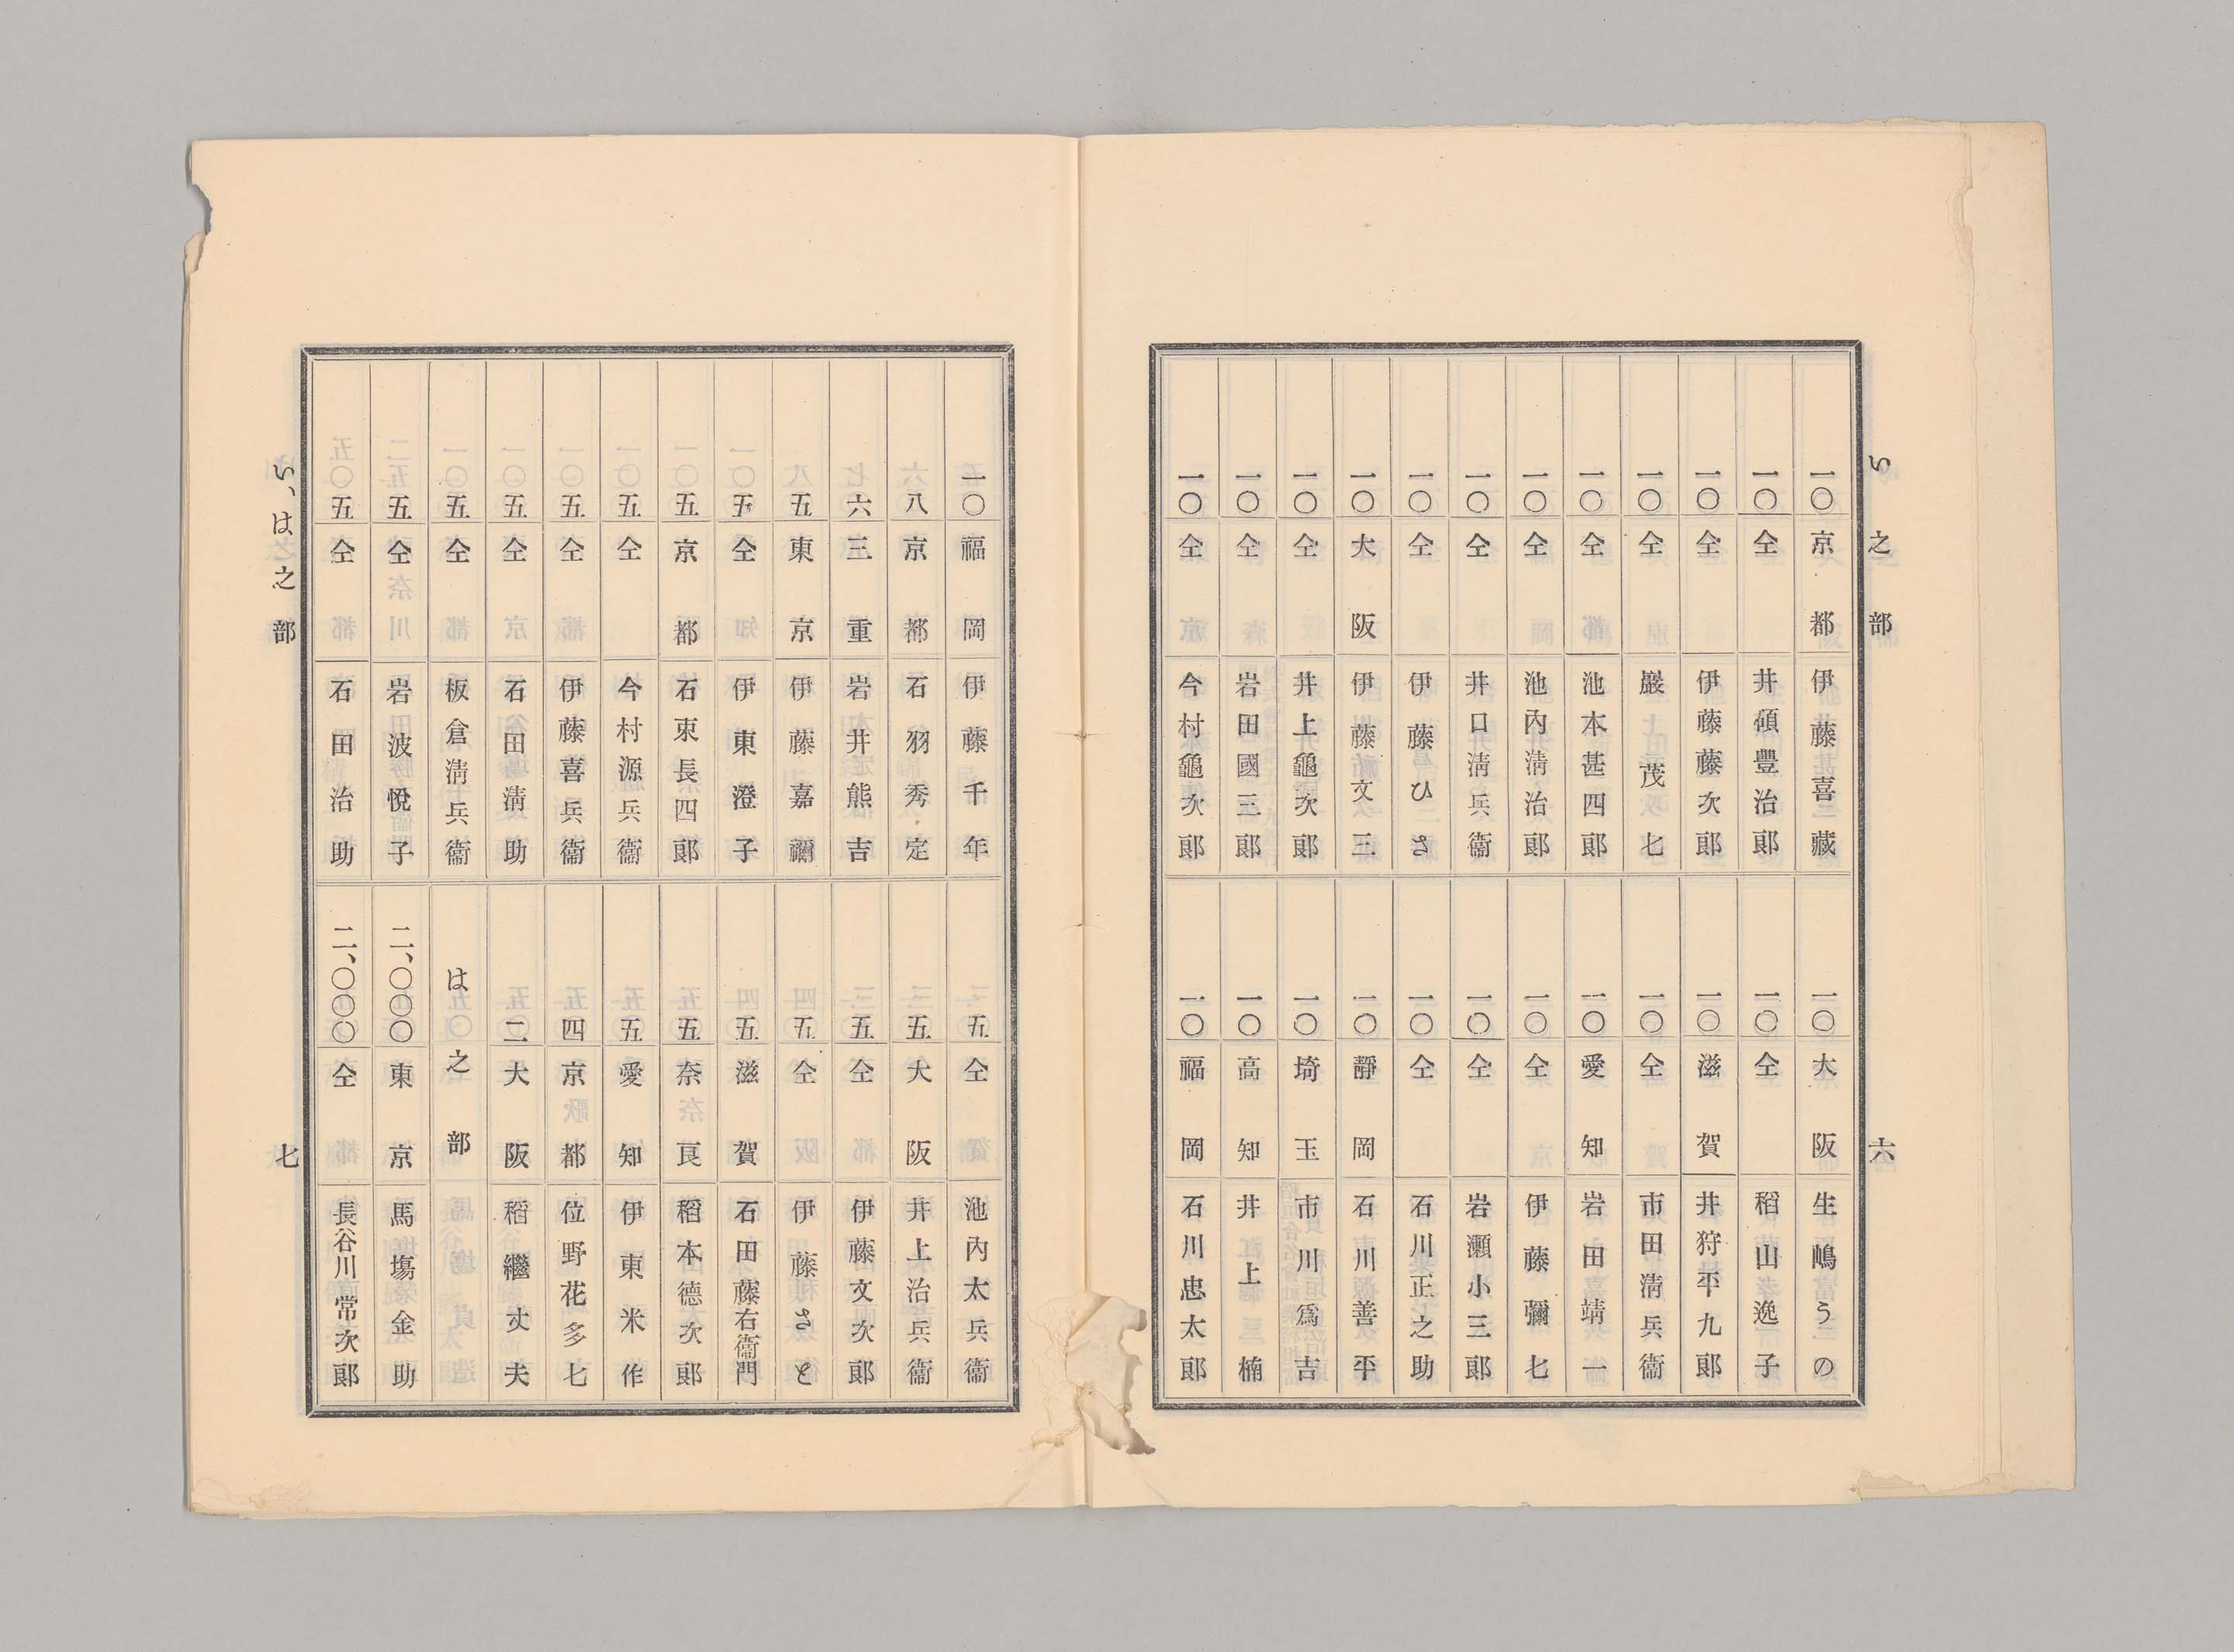 い之部
一〇 京都 伊藤喜藏
一〇 仝 井碩豐治郞
一〇 仝 伊藤藤次郞
一〇 仝 巖茂七
一〇 仝 池本甚四郞
一〇 仝 池內淸治郞
一〇 仝 井口淸兵衞
一〇 仝 伊藤ひさ
一〇 大阪 伊藤文三
一〇 仝 井上龜次郞
一〇 仝 岩田國三郞
一〇 仝 今村龜次郞
一〇 大阪 生嶋うの
一〇 仝 稻山逸子
一〇 滋賀 井狩平九郞
一〇 仝 市田淸兵衞
一〇 愛知 岩田靖一
一〇 仝 伊藤彌七
一〇 仝 岩瀨小三郞
一〇 仝 石川正之助
一〇 靜岡 石川善平
一〇 埼玉 市川爲吉
一〇 高知 井上楠
一〇 福岡 石川忠太郞
六
一〇 福岡 伊藤千年
八 京都 石羽秀定
六 三重 岩井熊吉
五 東京 伊藤嘉禰
五 仝 伊東澄子
五 京都 石束長四郞
五 仝 今村源兵衞
五 仝 伊藤喜兵衞
五 仝 石田淸助
五 仝 板倉淸兵衞
五 仝 岩波悅子
五 仝 石田治助
五 仝 池內太兵衞
五 大阪 井上治兵衞
五 仝 伊藤文次郞
五 仝 伊藤さと
五 滋賀 石田藤右衞門
五 奈良 稻本德次郞
五 愛知 伊東米作
四 京都 位野花多七
二 大阪 稻繼丈夫
は之部
二、〇〇〇 東京 馬塲金助
二、〇〇〇 仝 長谷川常次郞
い、は之部
七